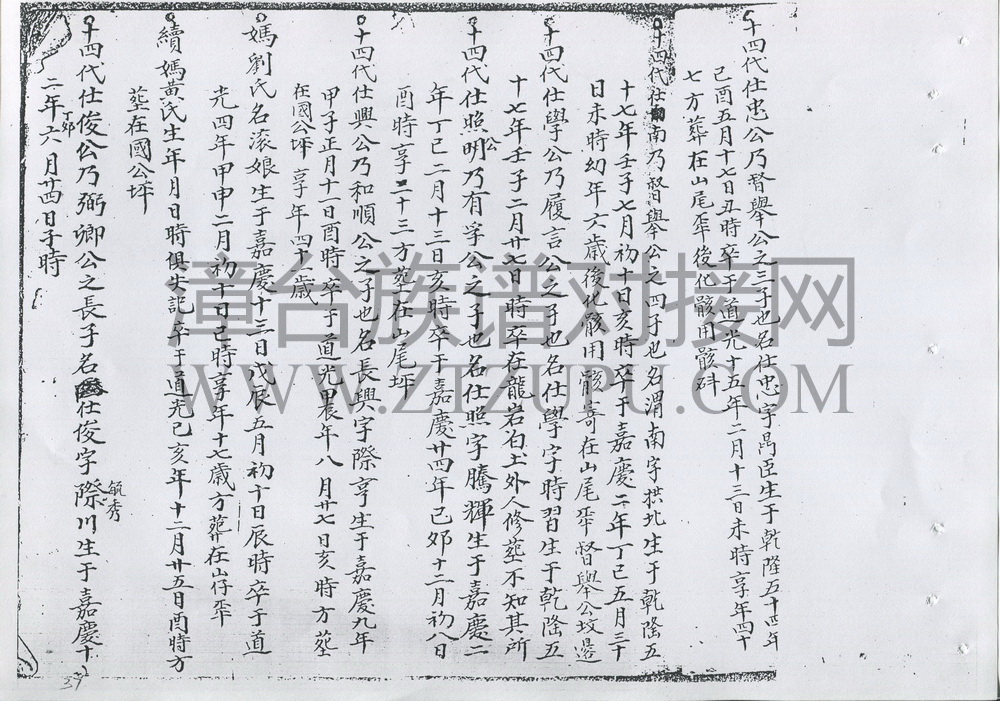 十四代仕忠公乃督舉公之三子也名仕忠字禼臣生于乾隆五十四年
己酉五月十七日丑時卒于道光十五年二月十三日未時享年四十
七方葬在山尾坪後化骸用骸
十四代仕南乃督舉公之四子也名渭南字拱北生于乾隆五
十七年壬子七月初十日亥時卒于嘉慶二年丁巳五月三十
日未時幼年六歲後化骸用骸寄在山尾坪督舉公坟邊
十四代仕學公乃履言公之子也名仕學字時習生于乾隆五
十七年壬子二月廿七日時卒在龍岩白土外人修塟不知其所
十四代仕照明公乃有孚公之子也名仕照字騰輝生于嘉慶二
年丁巳二月十三日亥時卒于嘉慶廿四年己卯十二月初八日
酉時享二十三方塟在山尾坪
十四代仕興公乃和順公之子也名長興字際亨生于嘉慶九年
甲子正月十一日酉時卒于道光年八月廿七日亥時方塟
在國公坪享年四十歲
媽劉氏名滾娘生于嘉慶十三日戊辰五月初十日辰時卒于道
光四年甲申二月初十日己時享年十七歲方葬在山仔坪
續媽黃氏生年月日時俱失記卒于道光己亥年十二月廿五日酉時方
塟在國公坪
十四代仕俊公乃弼卿公之長子名仕俊字際川毓秀生于嘉慶十
二年丁卯六月廿四日子時
37
章台族谱对接网
WWW.ZTZUPU.COM